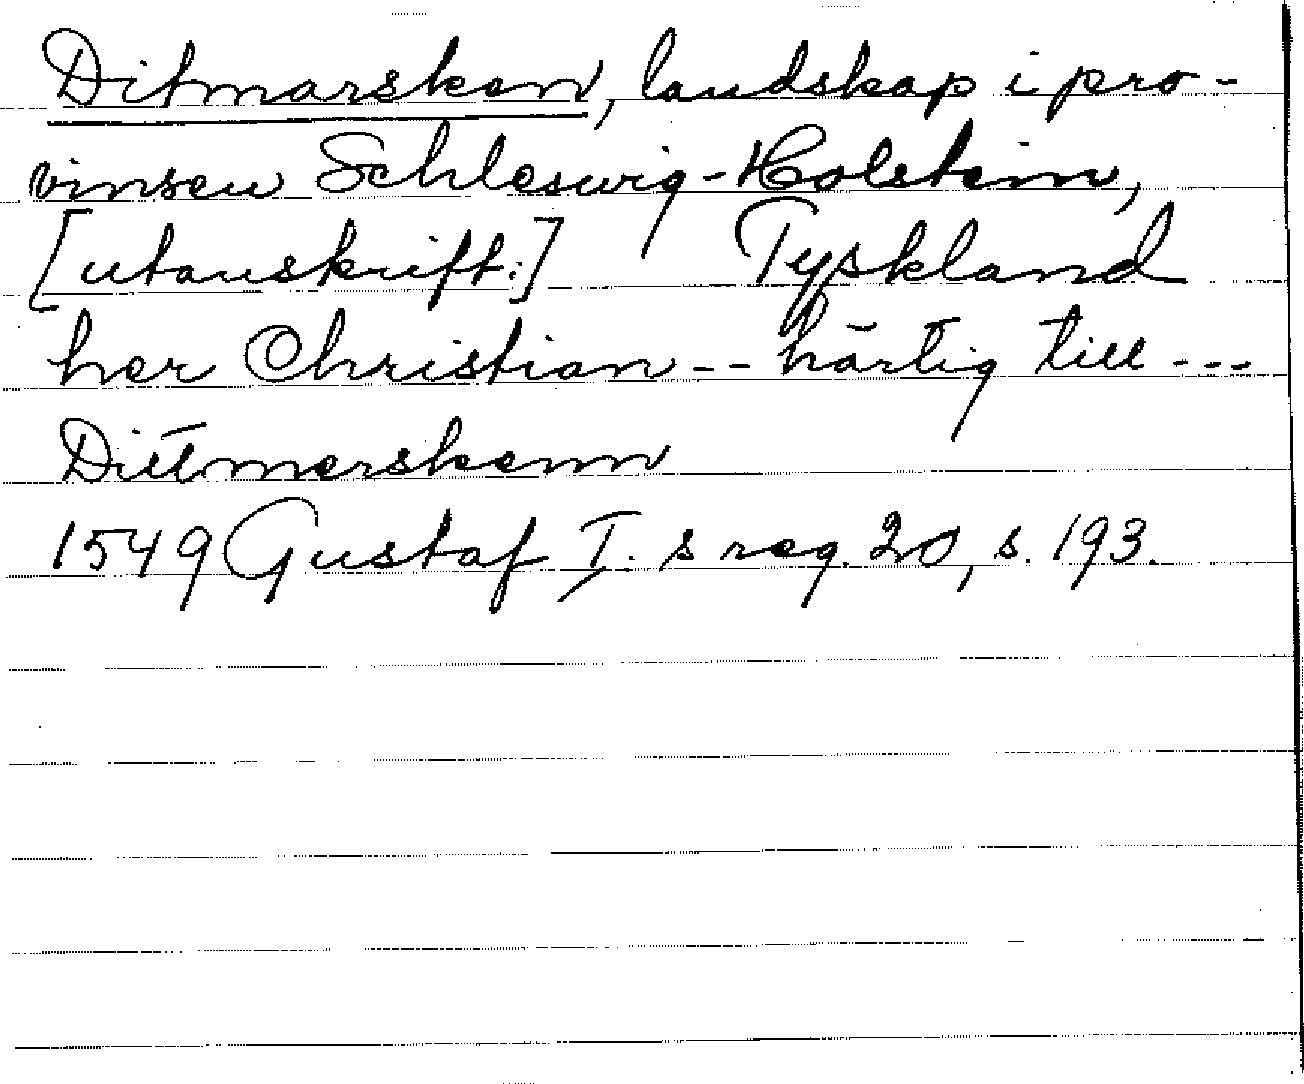 Ditmarsken, landskap i pro-
vinsen Schleswig-Holstein,
[utanskrift:] Tyskland
her Christian -- härtig till ---
Dittmerskenn
1549 Gustaf I. s reg. 20, s. 193.